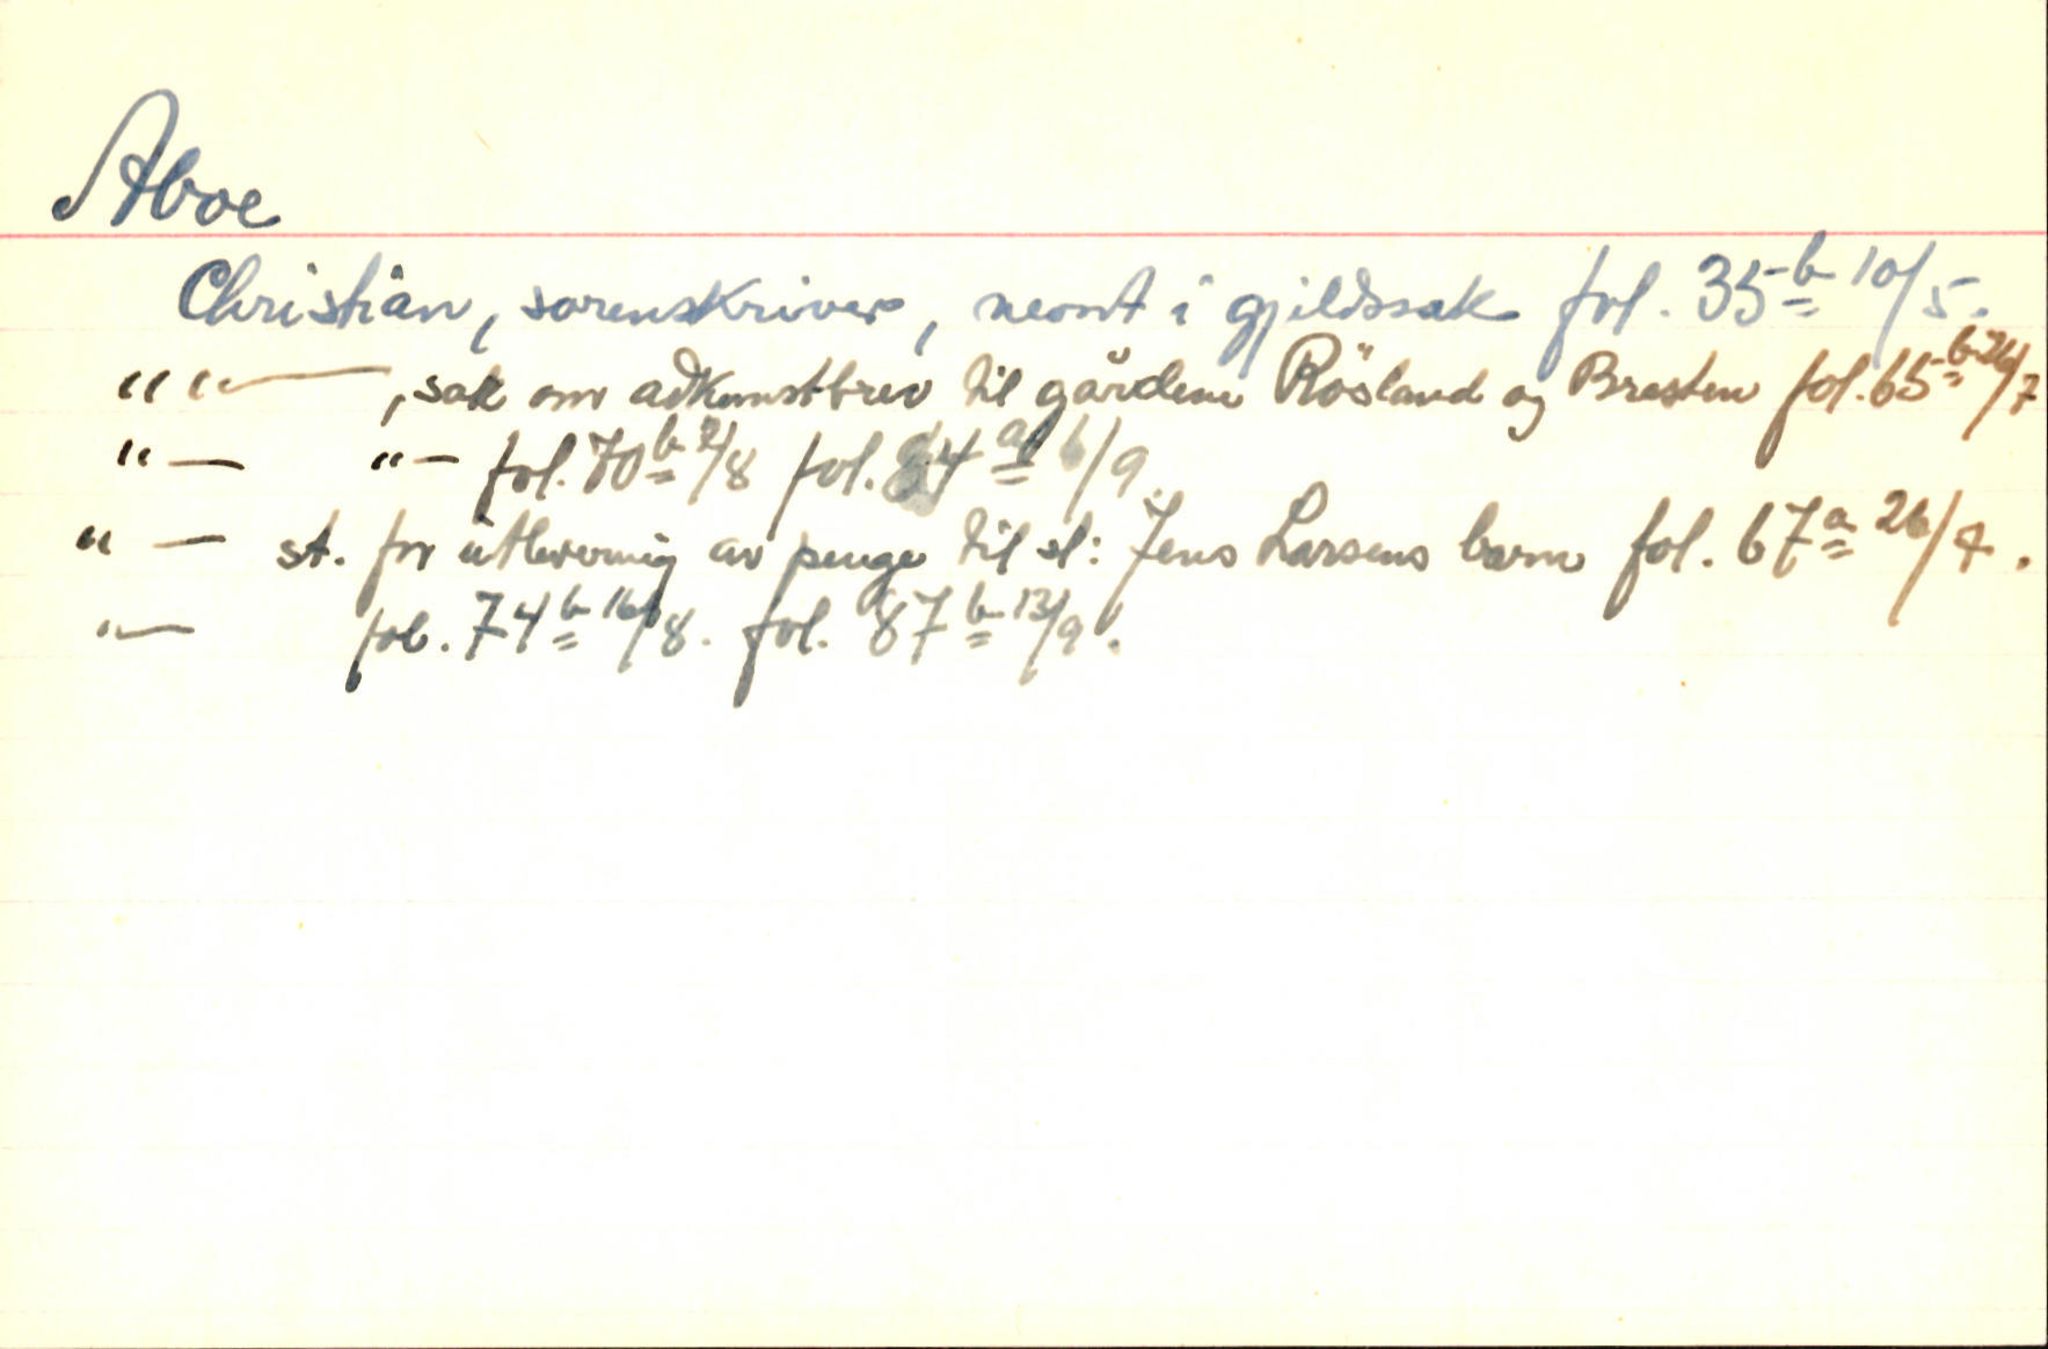 Aboe
Christian, sorenskriver, nevnt i gjeldssak fol. 35 b 10/5.
" " —, sak om adkomstbrev til gårdene Rösland og Bresten fol. 65 b 26/7
" — " — fol. 70 b 2/8 fol. 84 a 6/9.
" — st. for utlevering av penge til sl: Jens Larsens barn fol. 67 a 26/7.
" — fol. 74 b 16/8. fol. 87 b 13/9.